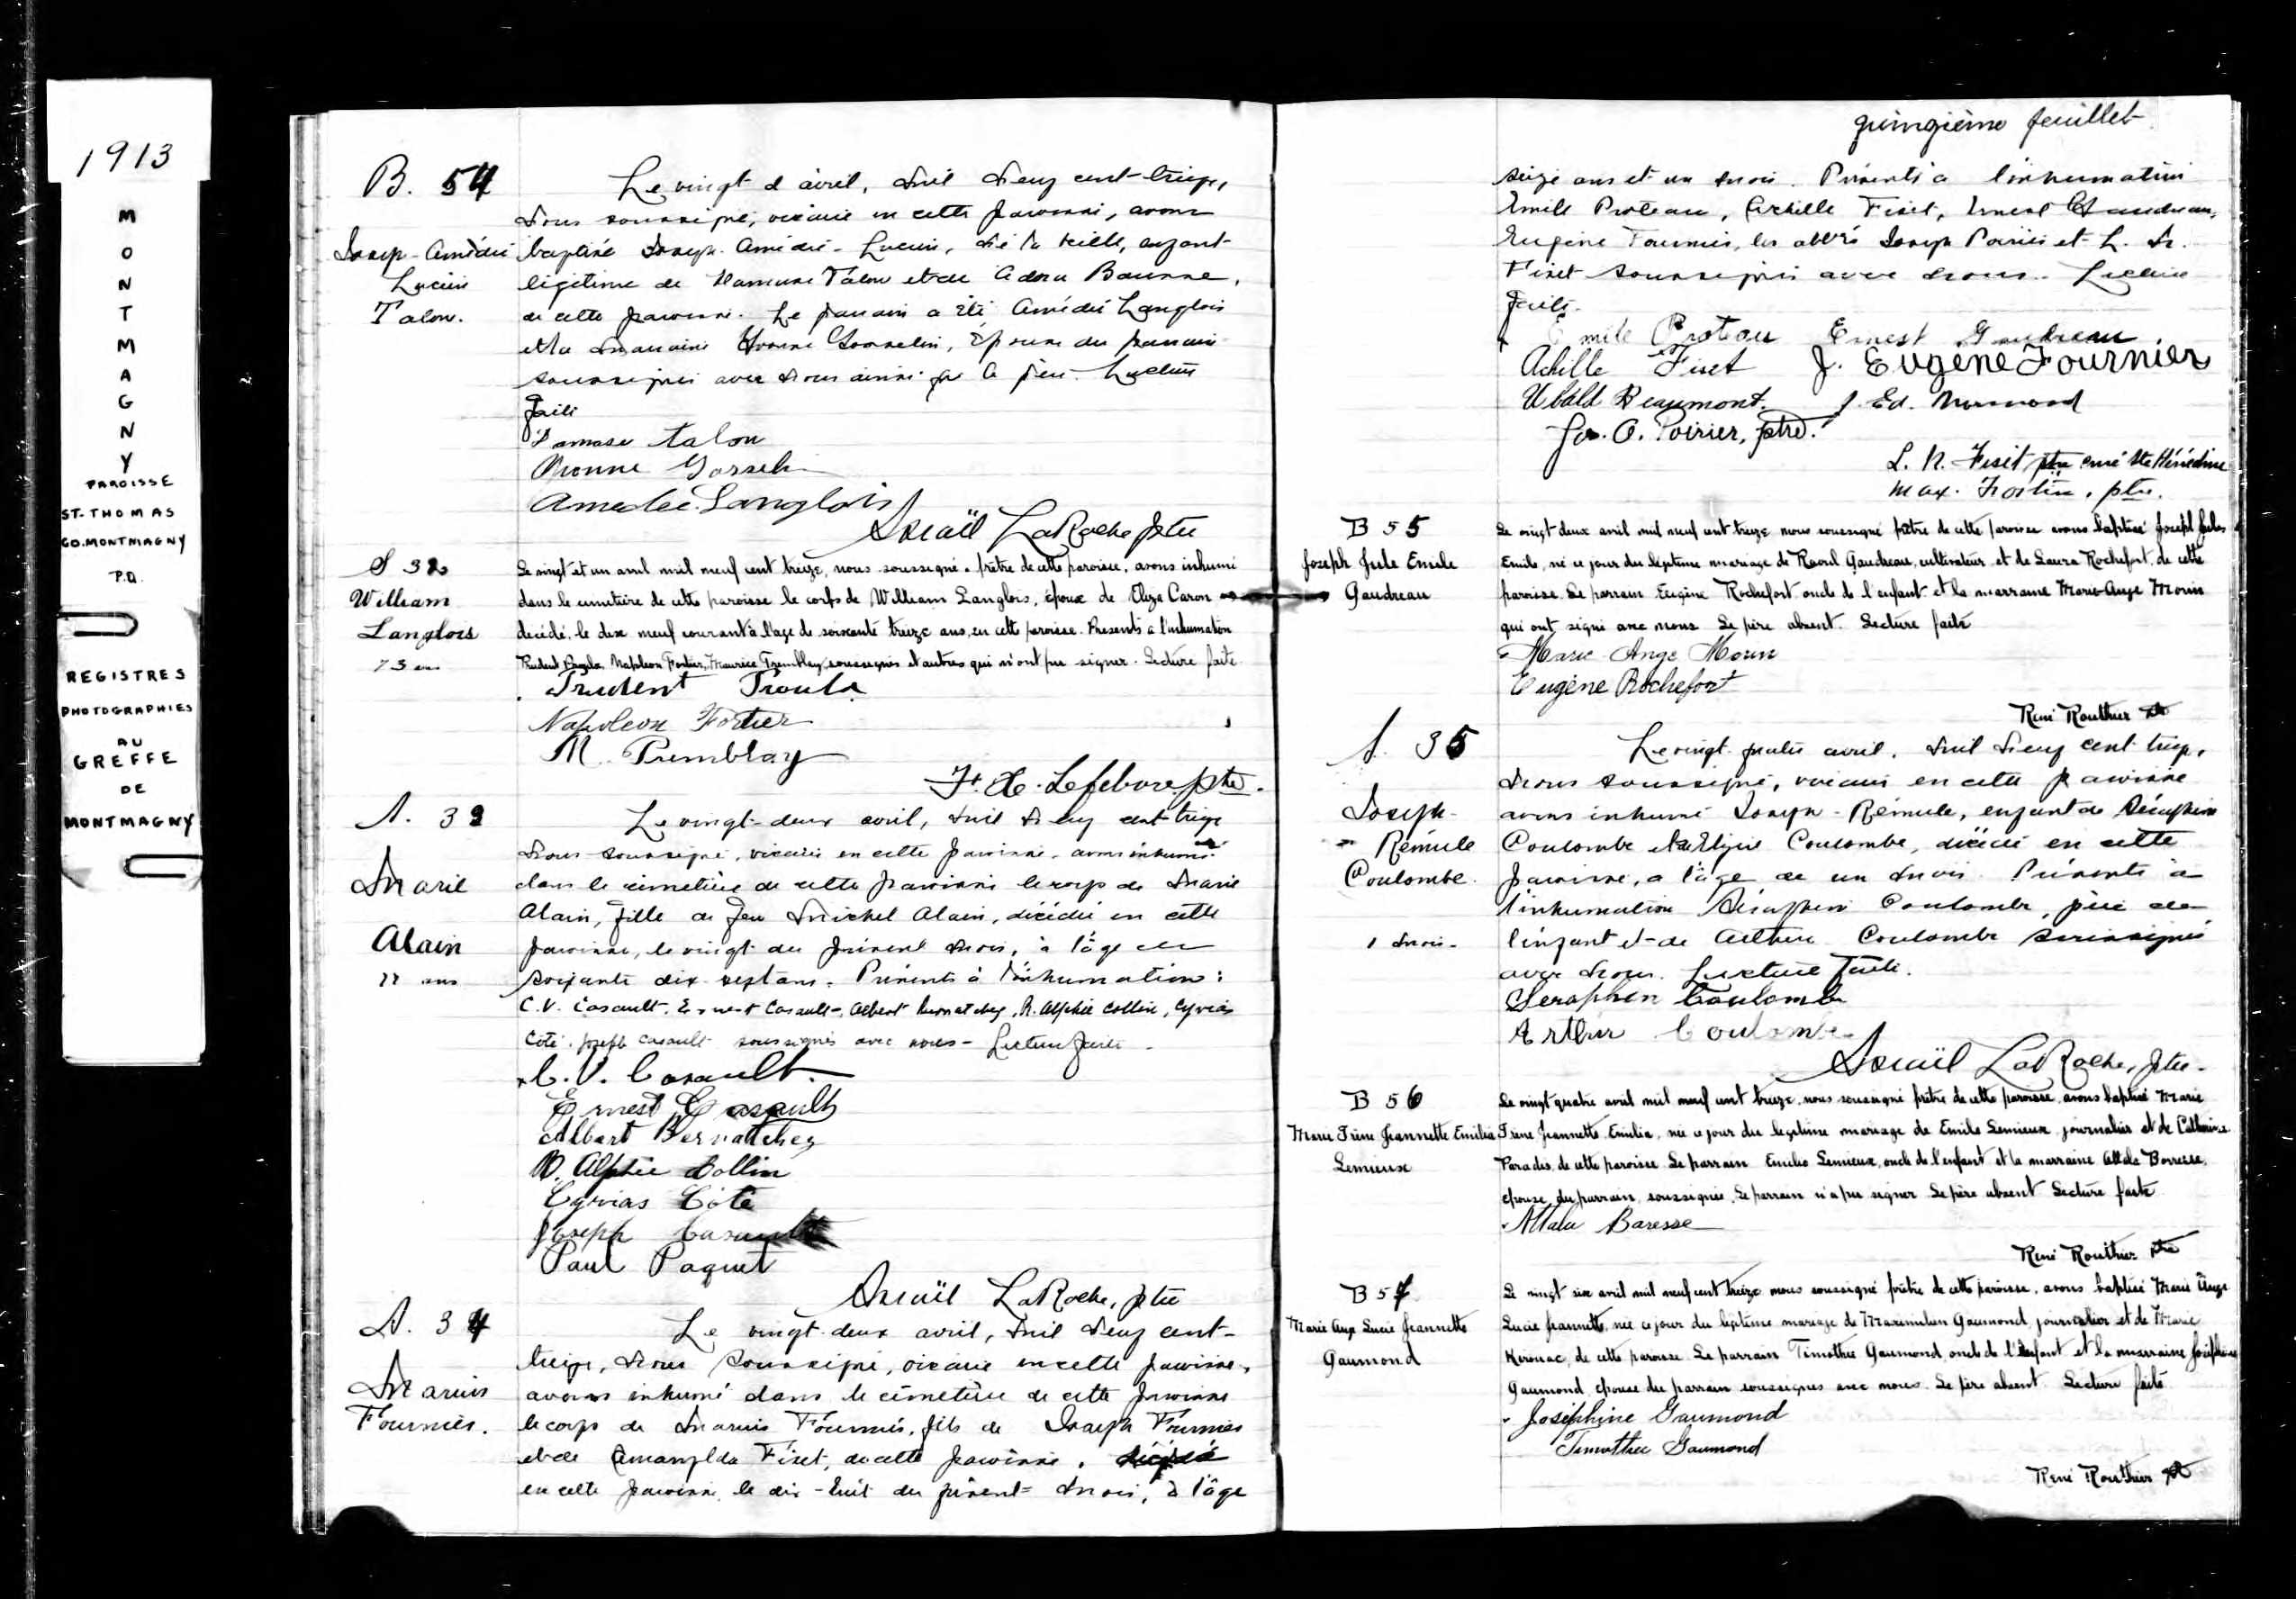 1913
MONTMAGNY
PAROISSE
ST-THOMAS
CO. MONTMAGNY
P.Q.
REGISTRES
PHOTOGRAPHIES
AU
GREFFE
DE
MONTMAGNY
B. 54
Joseph-Amédée
Lucien
Talon.
Le vingt d'avril, mil neuf cent-treize,
nous soussigné, vicaire en cette paroisse, avons
baptisé Joseph-Amédée-Lucien, né la veille, enfant
légitime de Damase Talon et de
de cette paroisse. Le parrain a été Amédée Langlois
et la marraine Yvonne Gosselin, épouse du parrain
soussignés avec nous ainsi que le père. Lecture
faite
Damase Talon
Yvonne Gosselin
Amedée Langlois
LaRoche ptre
S 32
William
Langlois
73 ans
Le vingt et un avril mil neuf cent treize, nous soussigné, prêtre de cette paroisse, avons inhumé
dans le cimetière de cette paroisse le corps de William Langlois, époux de Eliza Caron
décédé, le dix neuf courant à l'age de soixante treize ans, en cette paroisse. Presents à l'inhumation
Prudent Napoleon Fortier, Maurice Tremblay, soussignés et autres qui n'ont pu signer. Lecture faite
Prudent
Napoleon Fortier
M. Tremblay
F. X. Lefebvre, ptre.
S. 33
Marie
Alain
77 ans
Le vingt-deux avril, mil neuf cent treize
nous soussigné, vicaire en cette paroisse, avons inhumé
dans le cimetière de cette paroisse le corps de Marie
Alain, fille de feu Michel Alain, décédée en cette
paroisse, le vingt du présent mois, à l'âge de
soixante dix-sept ans. Présents à l'inhumation:
C.V. Casault, Ernest Casault, Albert Bernatchez, R. Alphée Collin, Cyrias
Côté, Joseph Casault soussignés avec nous - Lecture faite
C. V. Casault
Ernest Casault
Albert Bernatchez
R. Alphée Collin
Cyrias Côté
Joseph Casault
Paul Paquet
LaRoche, ptre
S. 34
Marius
Fournier.
Le vingt-deux avril, mil neuf cent-
treize, nous soussigné, vicaire en cette paroisse,
avons inhumé dans le cimetière de cette paroisse
le corps de Marius Fournier, fils de Joseph Fournier
et de Fiset, de cette paroisse, décédé
en cette paroisse le dix-huit du présent mois, à l'âge
quinzième feuillet
seize ans et un mois. Présents à l'inhumation
Emile Proteau, Achille Fiset, Ernest Gaudreau,
Eugène Fournier, les abbés Joseph Poirier et L. N.
Fiset soussignés avec nous. Lecture
faite.
Emile Proteau Ernest Gaudreau
Achille Fiset J. Eugène Fournier
Ubald Beaumont. J. Ed. Normand
Jos. O. Poirier, ptre.
L. N. Fiset ptre curé Ste Hénédine
Max. Fortin, ptre.
B 55
Joseph Jule Emile
Gaudreau
Le vingt deux avril mil neuf cent treize nous soussigné prêtre de cette paroisse avons baptisé Joseph Jules
Emile, né ce jour du légitime mariage de Raoul Gaudreau, cultivateur, et de Laura Rochefort, de cette
paroisse. Le parrain Eugène Rochefort oncle de l'enfant et la marraine Marie-Ange Morin
qui ont signé avec nous. Le père absent. Lecture faite
Marie Ange Morin
Eugène Rochefort
René Routhier ptre
S. 35
Joseph-
Rémule
Coulombe.
1 mois-
Le vingt-quatre avril, mil neuf cent treize,
nous soussigné, vicaire en cette paroisse
avons inhumé Joseph-Rémule, enfant de Séraphin
Coulombe Coulombe, décédé en cette
paroisse, à l'âge de un mois. Présents à
l'inhumation Séraphin Coulombe, père de
l'enfant et de Arthur Coulombe soussignés
avec nous. Lecture faite.
Seraphin Coulombe
Arthur Coulombe
LaRoche, ptre-
B 56
Marie Irène Jeannette Emilia
Lemieux
Le vingt quatre avril mil neuf cent treize, nous soussigné prêtre de cette paroisse, avons baptisé Marie
Irène Jeannette Emilia, née ce jour du légitime mariage de Emile Lemieux, journalier et de Catherine
Paradis, de cette paroisse. Le parrain Emilio Lemieux, oncle de l'enfant et la marraine Attala
épouse du parrain, soussignée. Le parrain n'a pu signer. Le père absent Lecture faite
Attala Baresse
René Routhier ptre
B 57
Marie Ange Lucie Jeannette
Gaumond
Le vingt six avril mil neuf cent treize nous soussigné prêtre de cette paroisse, avons baptisé Marie Ange
Lucie Jeannette, née ce jour du légitime mariage de Maximilien Gaumond, journalier et de Marie
Kerouac, de cette paroisse. Le parrain Timothée Gaumond oncle de l'enfant et la marraine Joséphine
Gaumond, épouse du parrain soussignés avec nous. Le père absent. Lecture faite
Joséphine Gaumond
Timothée Gaumond
René Routhier ptre